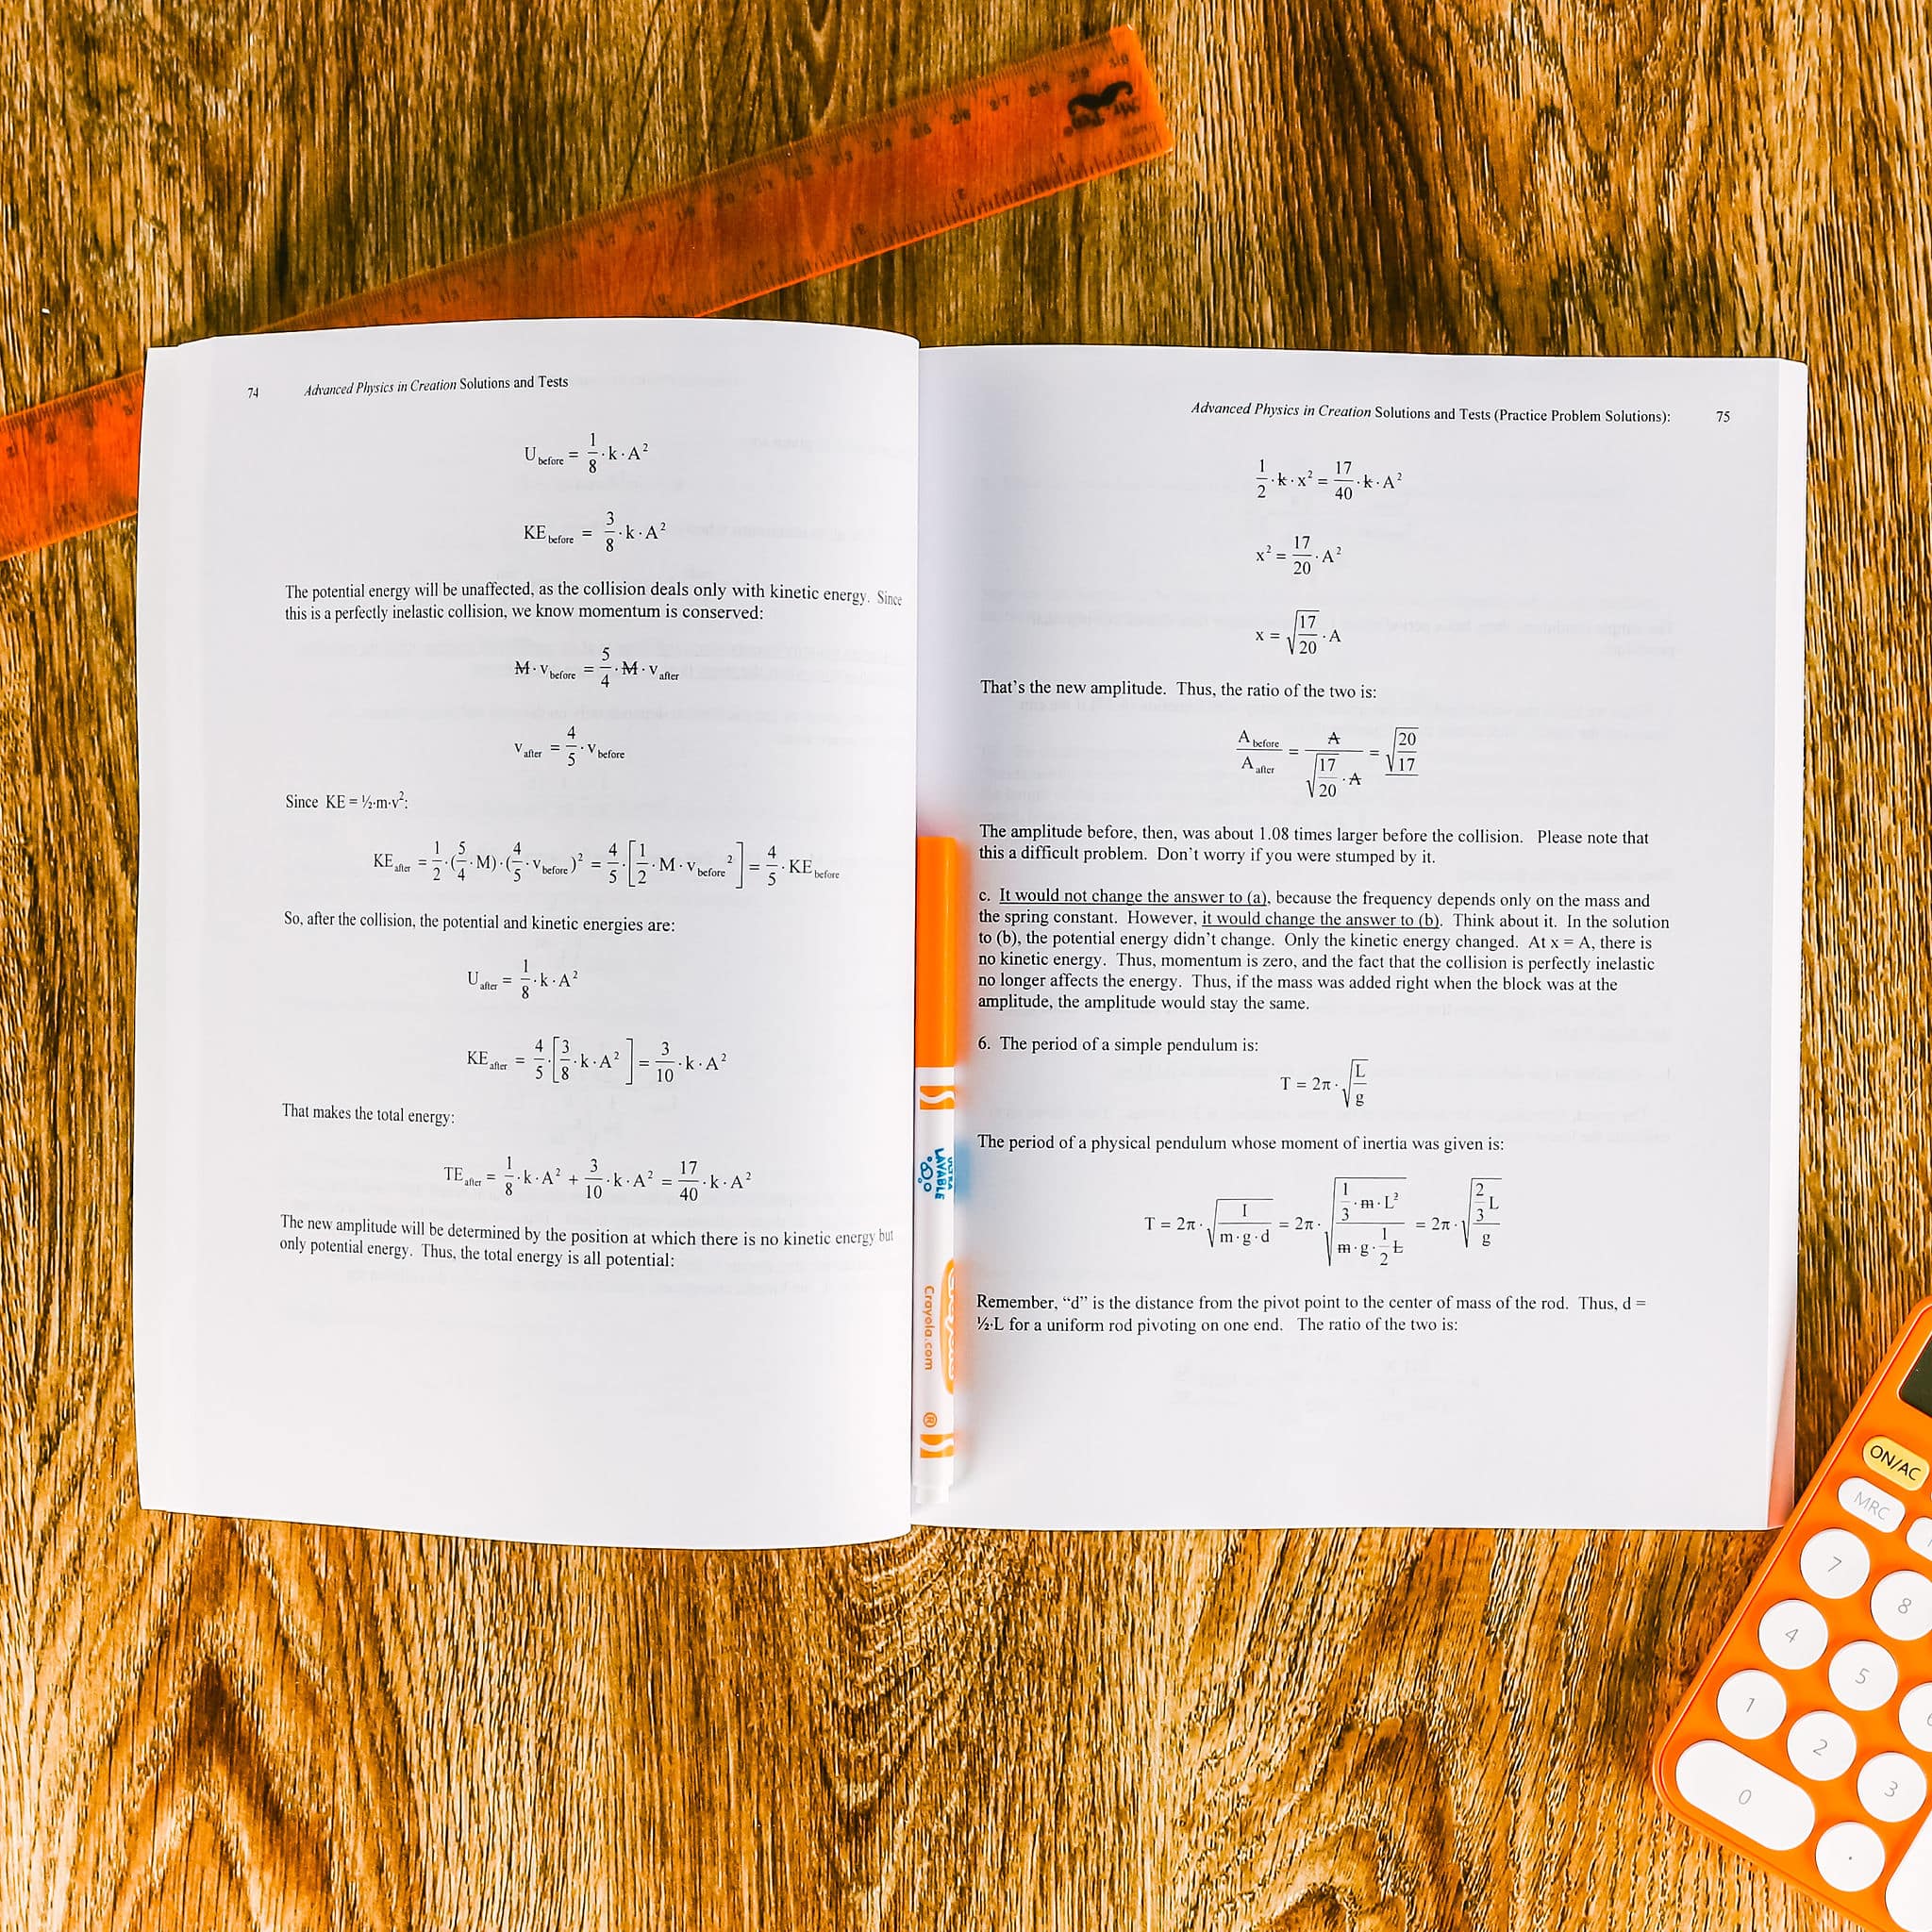 74 Advanced Physics in Creation Solutions and Tests
U before = 1/8 · k · A²
KE before = 3/8 · k · A²
The potential energy will be unaffected, as the collision deals only with kinetic energy. Since
this is a perfectly inelastic collision, we know momentum is conserved:
M · v before = 5/4 · M · v after
v after = 4/5 · v before
Since KE = ½·m·v²:
KE after = 1/2 · (5/4 · M) · (4/5 · v before)² = 4/5 · [1/2 · M · v before²] = 4/5 · KE before
So, after the collision, the potential and kinetic energies are:
U after = 1/8 · k · A²
KE after = 4/5 · [3/8 · k · A²] = 3/10 · k · A²
That makes the total energy:
TE after = 1/8 · k · A² + 3/10 · k · A² = 17/40 · k · A²
The new amplitude will be determined by the position at which there is no kinetic energy but
only potential energy. Thus, the total energy is all potential:
Advanced Physics in Creation Solutions and Tests (Practice Problem Solutions): 75
1/2 · k · x² = 17/40 · k · A²
x² = 17/20 · A²
x = √(17/20) · A
That's the new amplitude. Thus, the ratio of the two is:
A before / A after = A / (√(17/20) · A) = √(20/17)
The amplitude before, then, was about 1.08 times larger before the collision. Please note that
this a difficult problem. Don't worry if you were stumped by it.
c. It would not change the answer to (a), because the frequency depends only on the mass and
the spring constant. However, it would change the answer to (b). Think about it. In the solution
to (b), the potential energy didn't change. Only the kinetic energy changed. At x = A, there is
no kinetic energy. Thus, momentum is zero, and the fact that the collision is perfectly inelastic
no longer affects the energy. Thus, if the mass was added right when the block was at the
amplitude, the amplitude would stay the same.
6. The period of a simple pendulum is:
T = 2π · √(L/g)
The period of a physical pendulum whose moment of inertia was given is:
T = 2π · √(I / (m · g · d)) = 2π · √((1/3 · m · L²) / (m · g · 1/2 L)) = 2π · √((2/3 L) / g)
Remember, "d" is the distance from the pivot point to the center of mass of the rod. Thus, d =
½·L for a uniform rod pivoting on one end. The ratio of the two is:
LAVABLE
Crayola.com
®
ON/AC
MRC
7
8
4
5
1
2
3
0
.